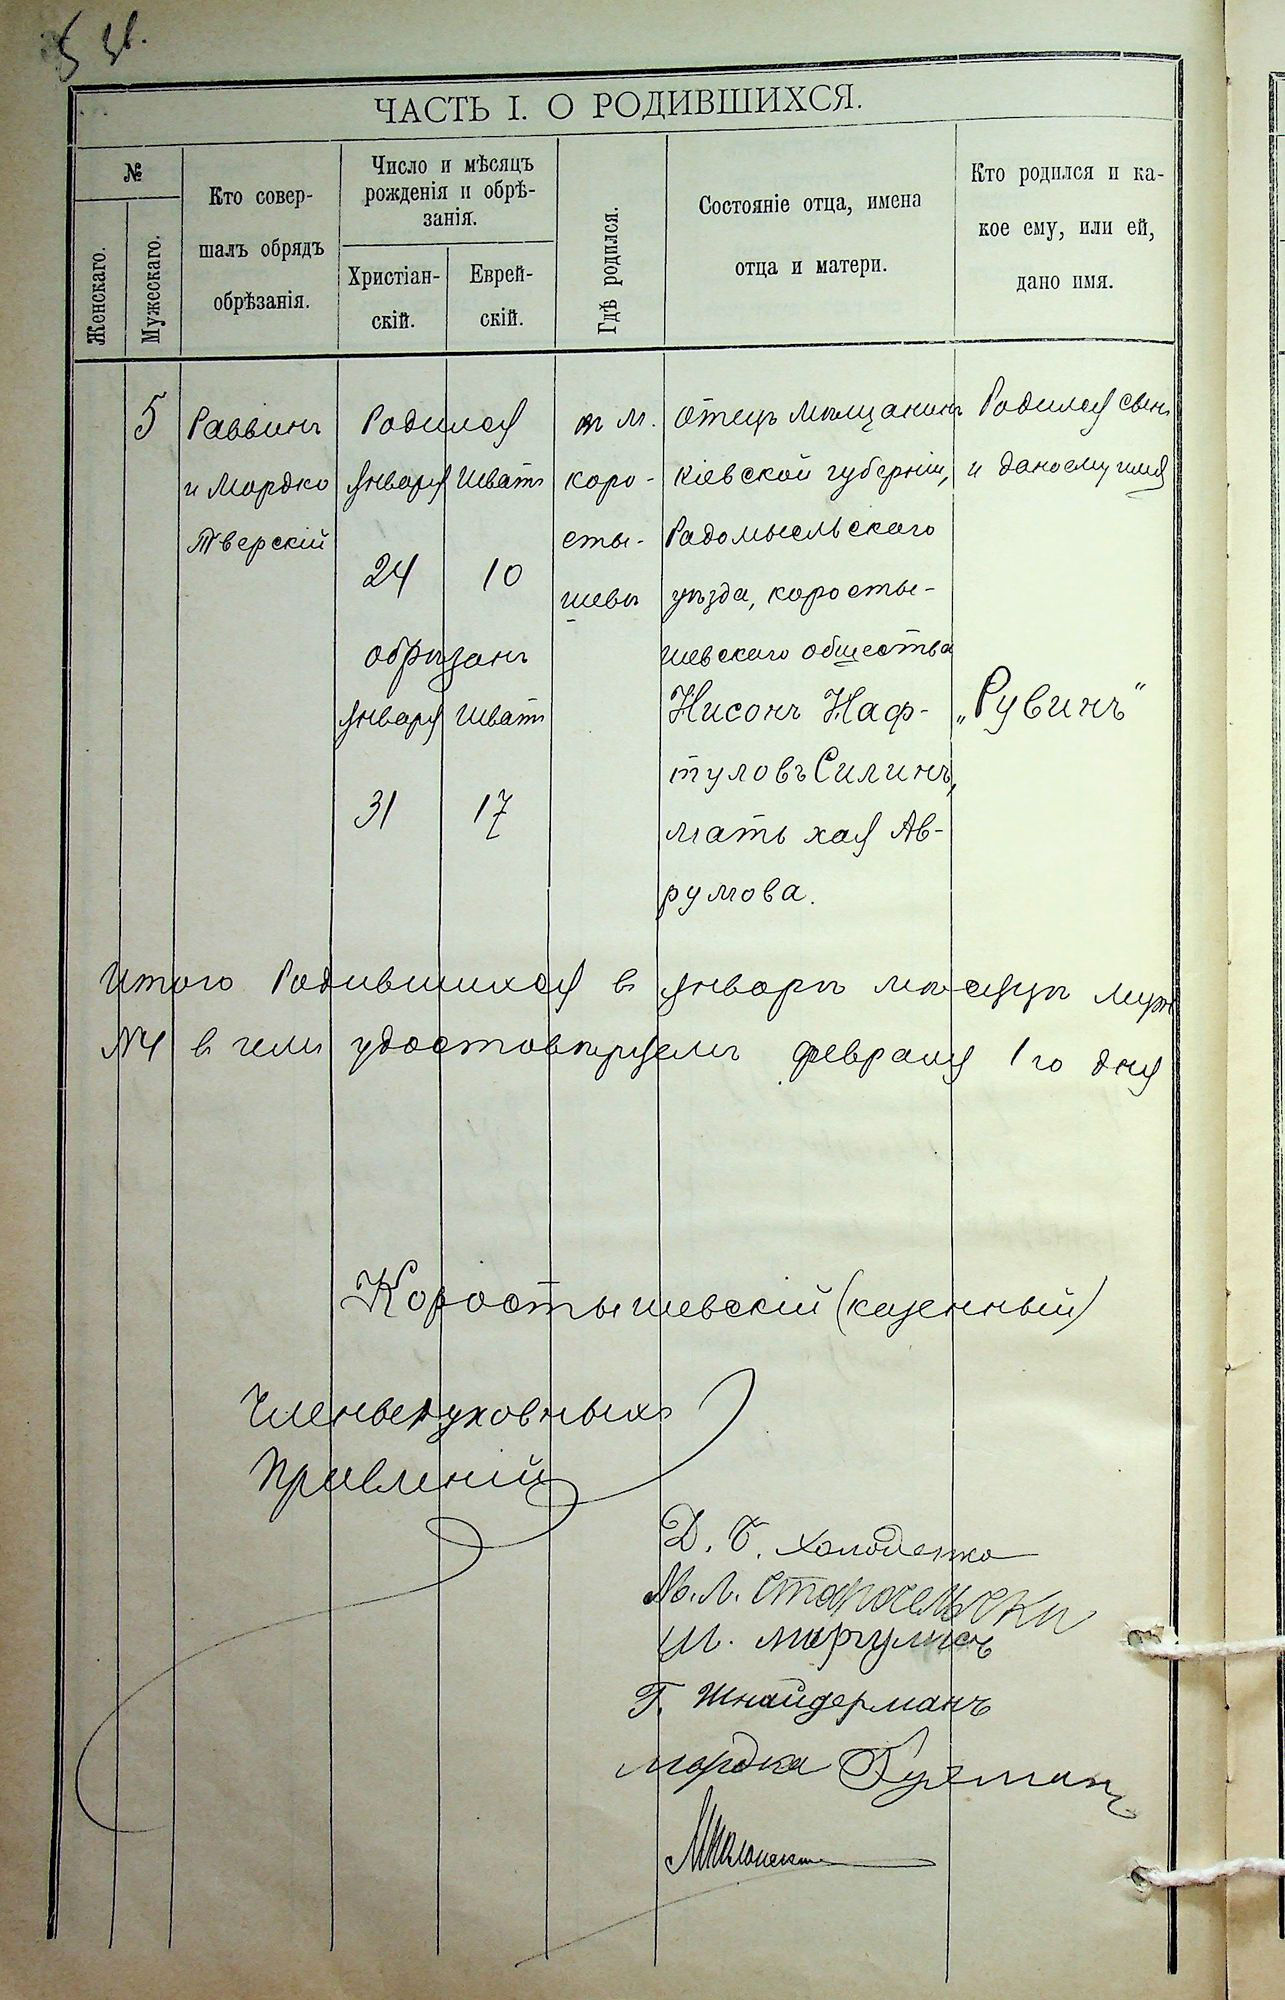 54.
ЧАСТЬ I. О РОДИВШИХСЯ.
№
Женскаго.
Мужескаго.
Кто совер-
шалъ обрядъ
обрѣзанія.
Число и мѣсяцъ
рожденія и обрѣ-
занія.
Христіан-
скій.
Еврей-
скій.
Гдѣ родился.
Состояніе отца, имена
отца и матери.
Кто родился и ка-
кое ему, или ей,
дано имя.
5
Раввинъ
и Мордко
Тверскій
Родился
Января Шватъ
24 10
обрѣзанъ
Января Шватъ
31 17
въ М.
Коро-
сты-
шевѣ
Отецъ мѣщанинъ
Кіевской губерніи,
Радомысльскаго
уѣзда, Коросты-
шевскаго общества
Нисонъ Наф-
туловъ Силинъ,
мать Хая Ав-
румова.
Родился сынъ
и дано ему имя
„Рувинъ"
Итого Родившихся в Январѣ мѣсяцѣ муж
№4 в чемъ удостовѣряемъ февраля 1го дня
Коростышевскій (казенный)
Члены духовныхъ
Правленій
Д. Б. Холоденко
М. Л. Старосельски
Ш. Маргулисъ
Г. Шнайдерманъ
Мордка